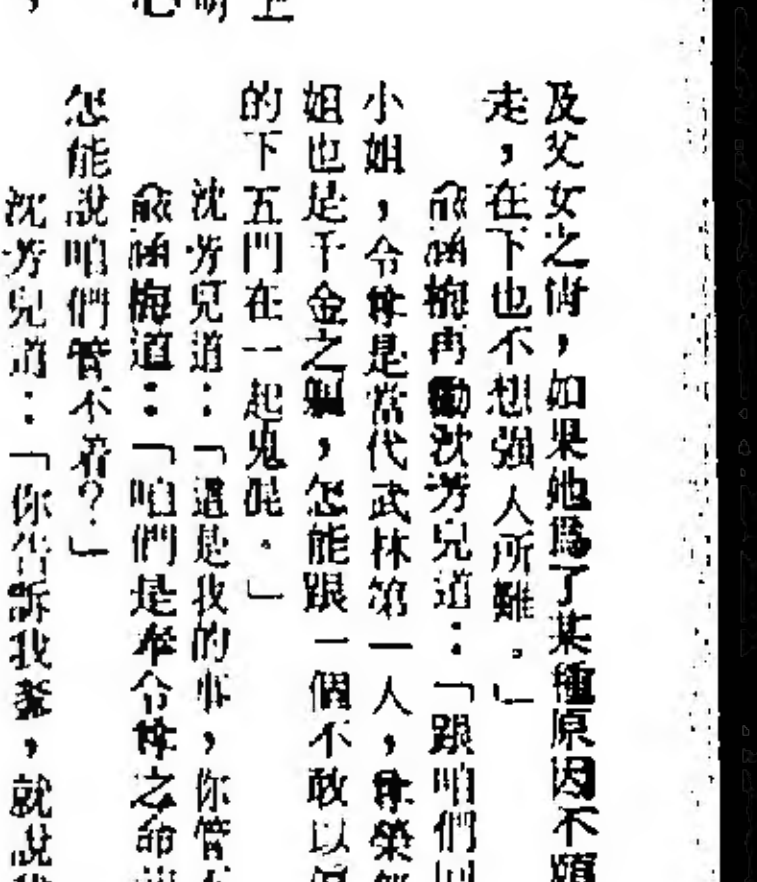 及父女之情，如果她爲了某種原因不願
走，在下也不想强人所難。」
俞涵梅再勸沈芳兒道：「跟咱們回
小姐，令尊是當代武林第一人，尊榮
姐也是千金之軀，怎能跟一個不敢以
的下五門在一起鬼混。」
沈芳兒道：「這是我的事，你管不
俞涵梅道：「咱們是奉令尊之命
怎能說咱們管不着？」
沈芳兒道：「你告訴我爹，就說我